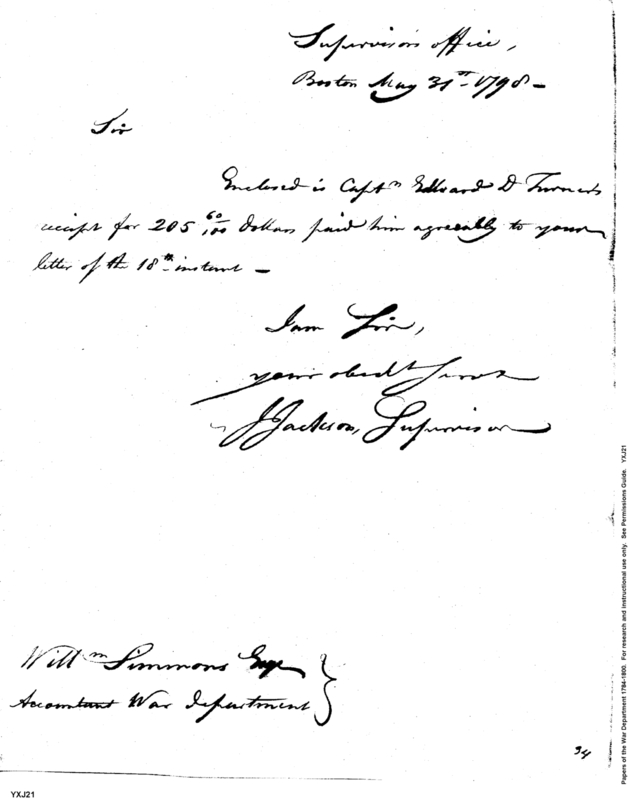 Supervisor's office,
Boston May 31st 1798 -
Sir
Enclosed is Captn Edward D Turner's
receipt for 205 60/100 dollars paid him agreeably to your
letter of the 18th instant -
I am Sir,
your obedt Servt
J Jackson, Supervisor
Willm Simmons Esqr
Accountant War department
34
YXJ21
Papers of the War Department 1784-1800. For research and instructional use only. See Permissions Guide. YXJ21